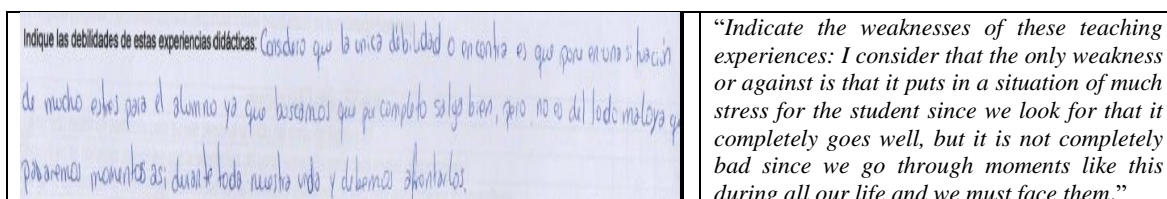 Indique las debilidades de estas experiencias didácticas: Considero que la unica debilidad o encontra es que pone en una situación
de mucho estres para el alumno ya que buscamos que por completo salga bien, pero no es del todo malo ya que
pasaremos momentos asi durante toda nuestra vida y debemos afrontarlos.
“Indicate the weaknesses of these teaching
experiences: I consider that the only weakness
or against is that it puts in a situation of much
stress for the student since we look for that it
completely goes well, but it is not completely
bad since we go through moments like this
during all our life and we must face them.”